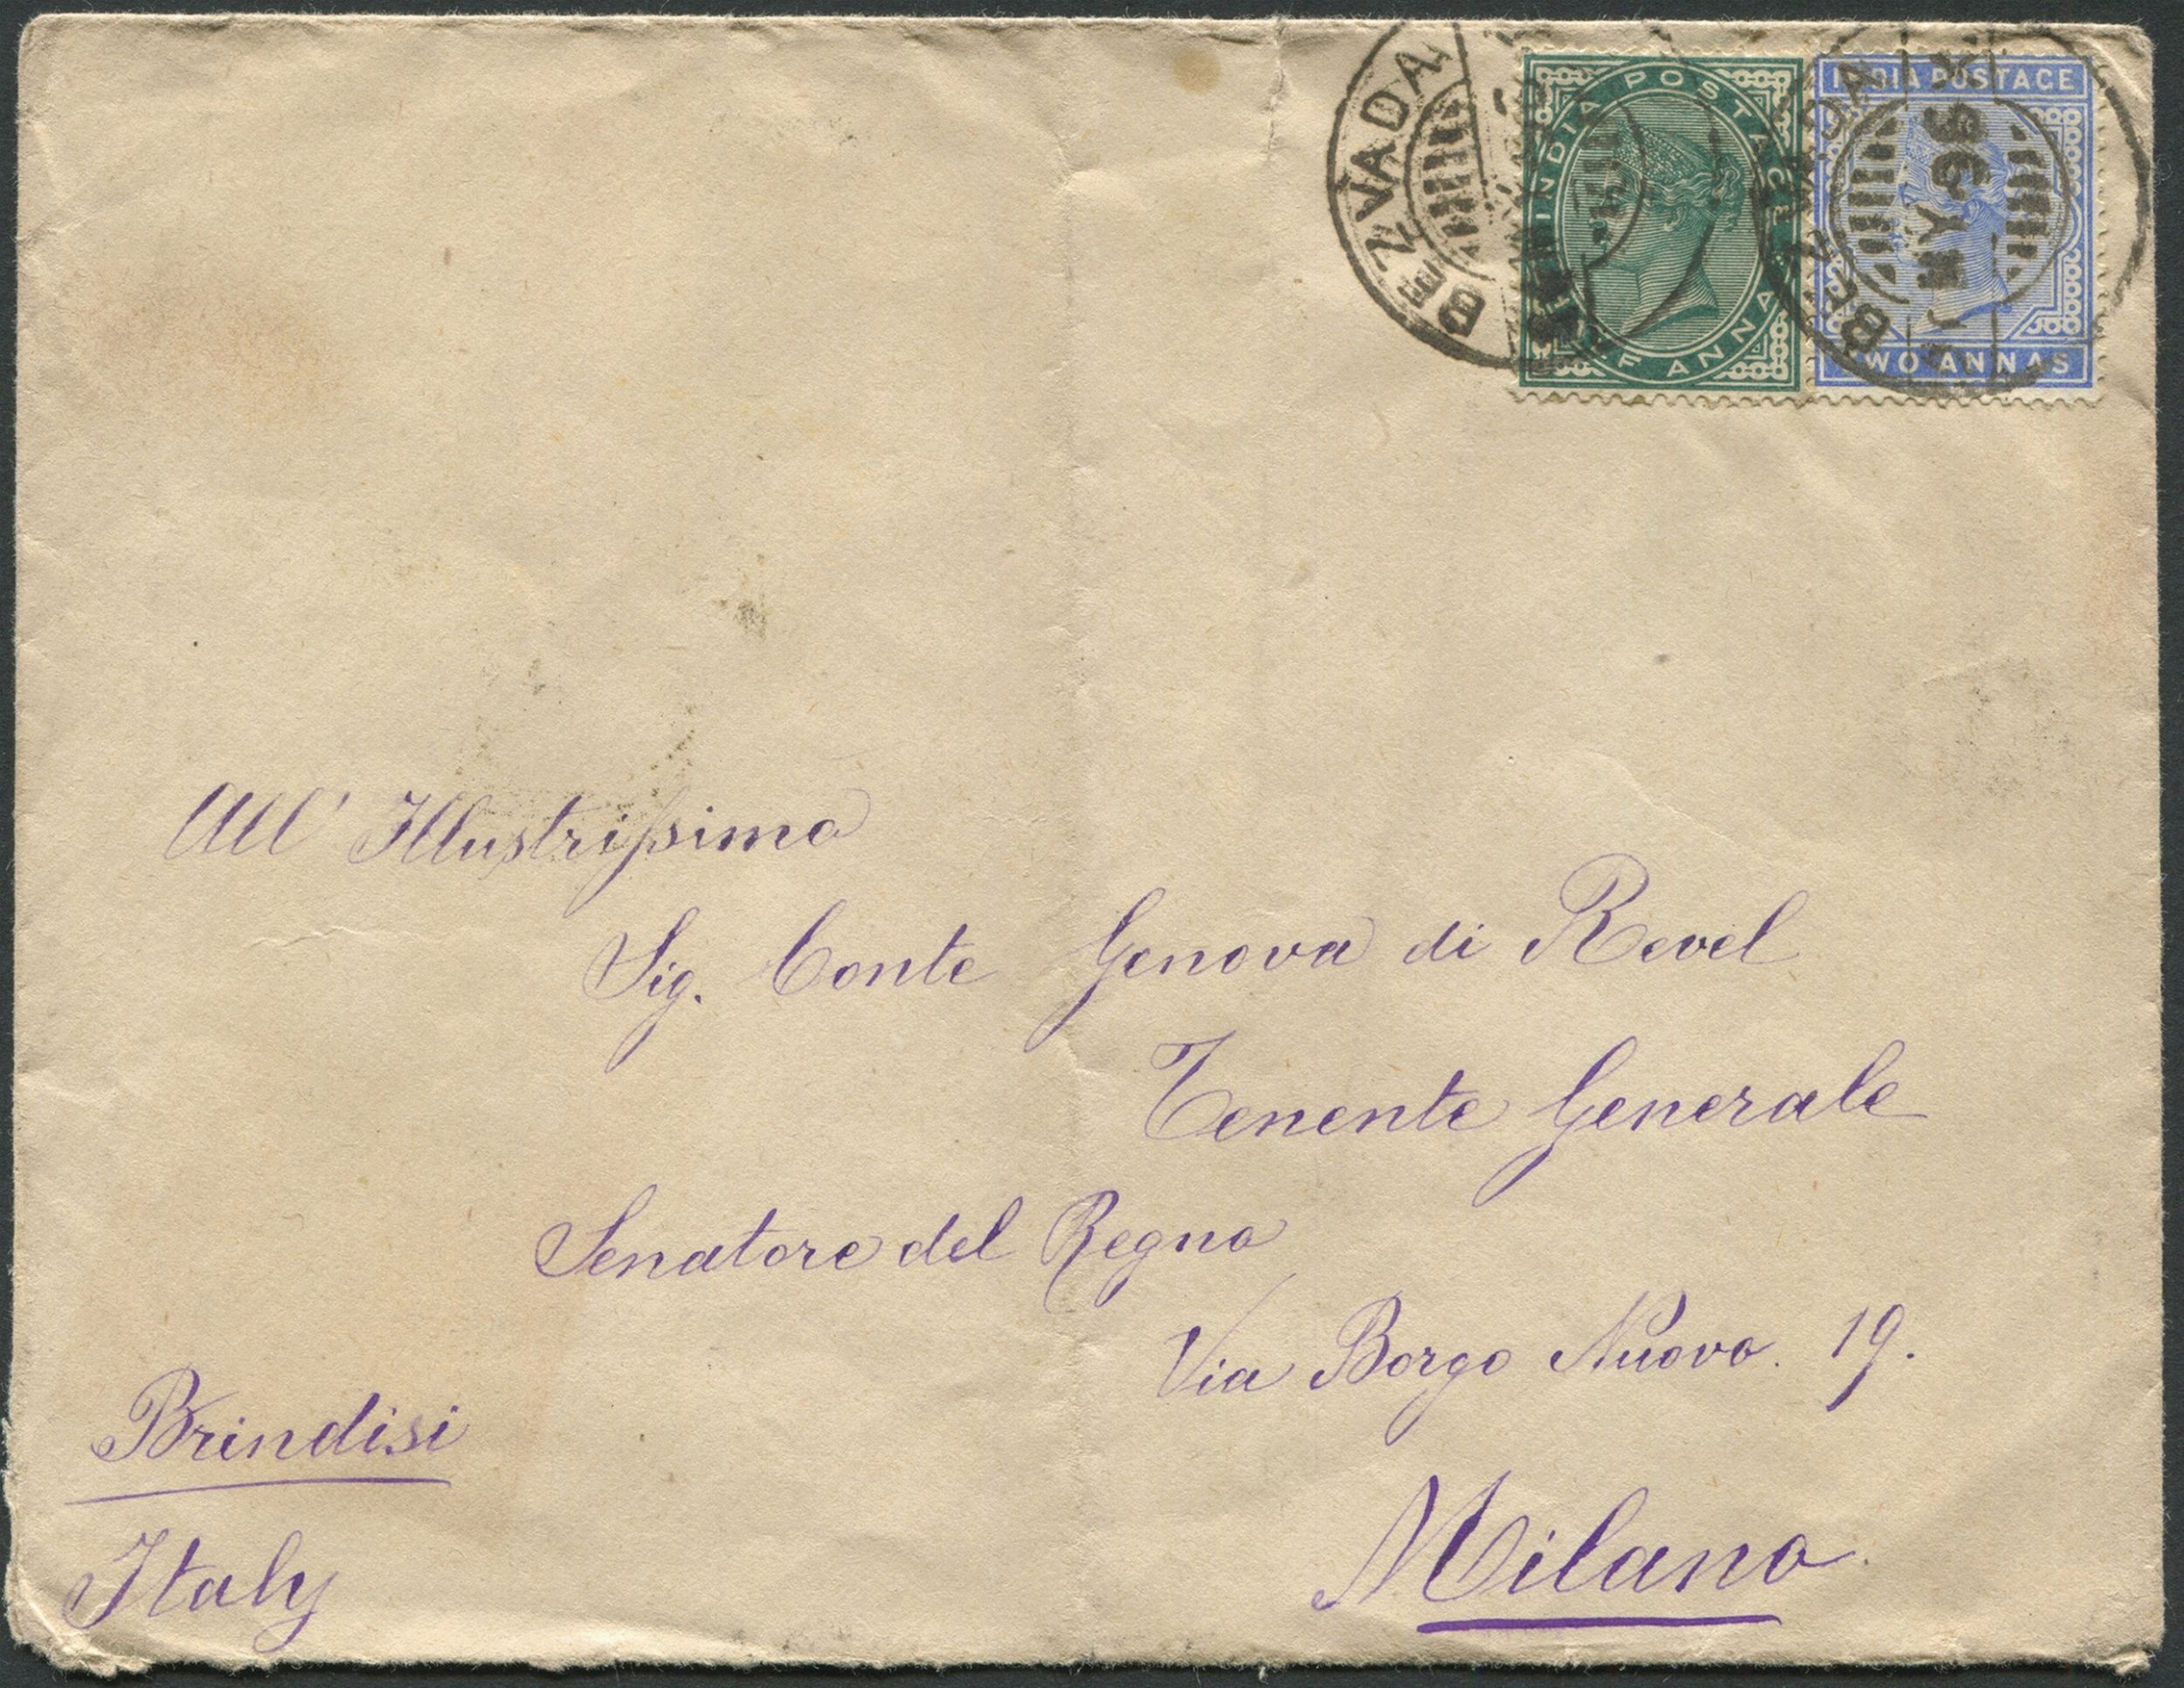 BEZVADA
INDIA POSTAGE
HALF ANNA
BEZVADA
MY 96
INDIA POSTAGE
TWO ANNAS
All' Illustrissimo
Sig. Conte Genova di Revel
Tenente Generale
Senatore del Regno
Via Borgo Nuovo. 19.
Milano.
Brindisi
Italy